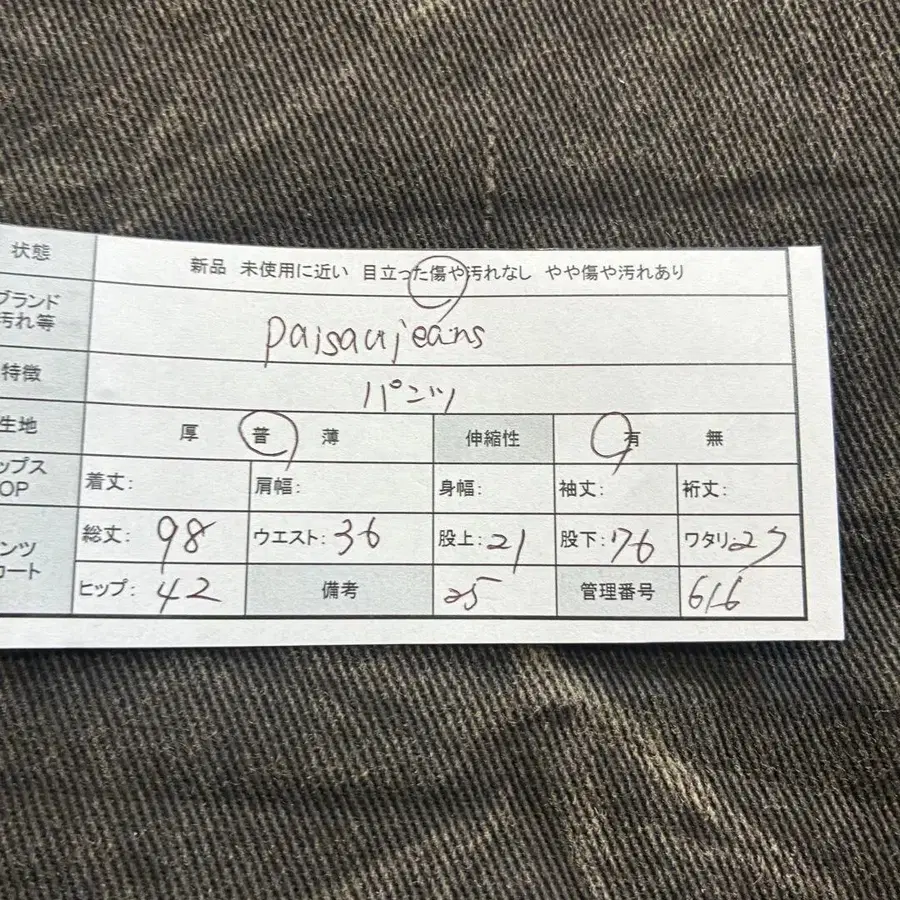 状態 新品 未使用に近い 目立った傷や汚れなし やや傷や汚れあり
ブランド
汚れ等 paisaujeans
特徴 パンツ
生地 厚 普 薄 伸縮性 有 無
ップス
OP 着丈: 肩幅: 身幅: 袖丈: 裄丈:
ンツ
カート 総丈: 98 ウエスト: 36 股上: 21 股下: 76 ワタリ: 27
ヒップ: 42 備考 25 管理番号 616